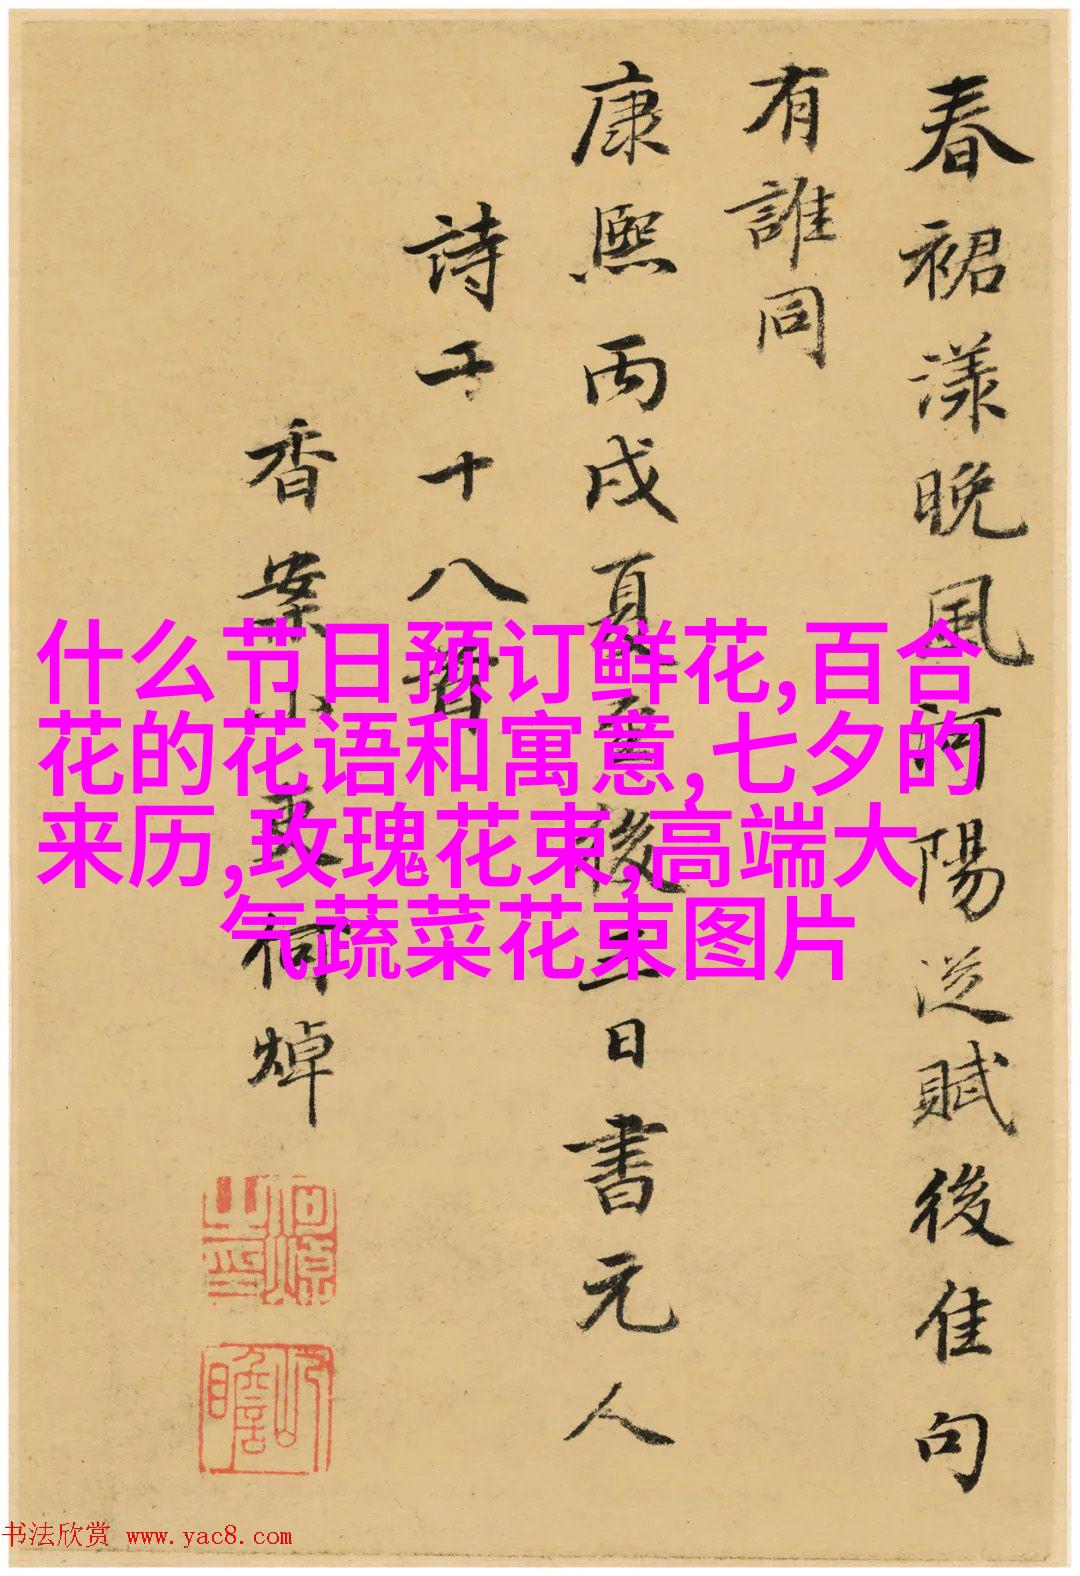 春裙漾晚風河陽從賦後佳句
有誰同
康熙丙戌夏至後三日書元人
詩于十八
香案小吏何焯
何焯之印
屺瞻
什么节日预订鲜花,百合
花的花语和寓意,七夕的
来历,玫瑰花束,高端大
气蔬菜花束图片
书法欣赏 www.yac8.com